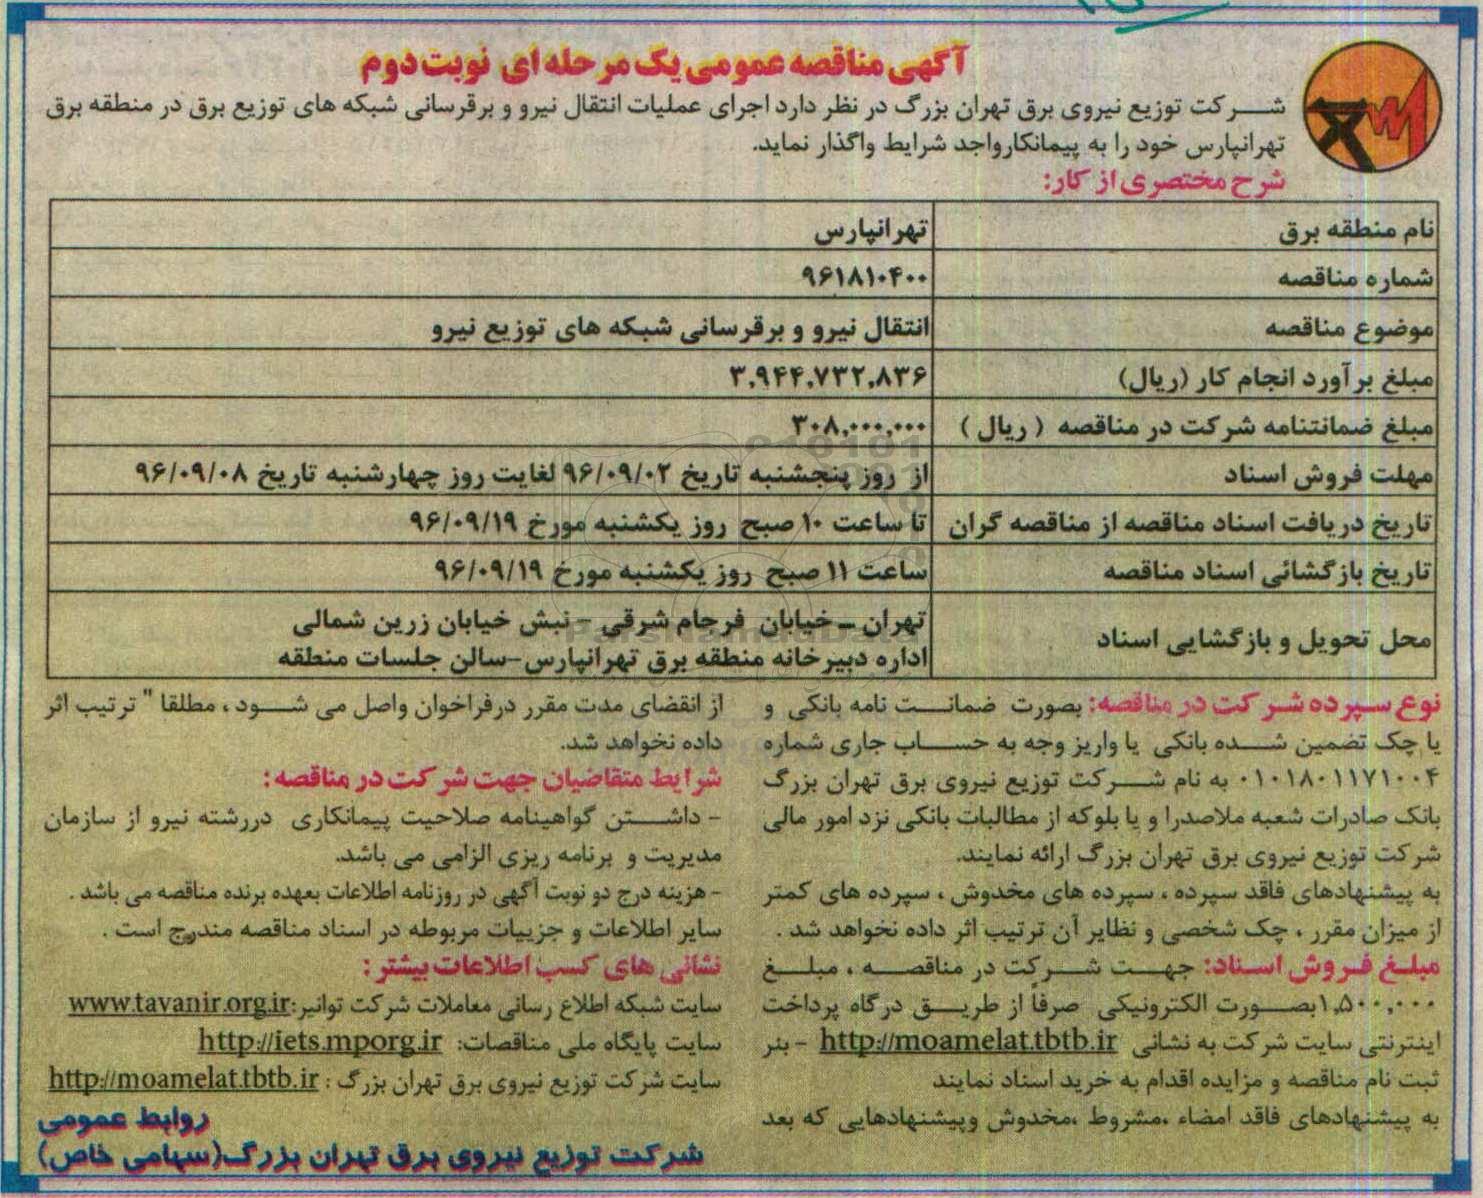 آگهی مناقصه عمومی یک مرحله ای نوبت دوم
شرکت توزیع نیروی برق تهران بزرگ در نظر دارد اجرای عملیات انتقال نیرو و برقرسانی شبکه های توزیع برق در منطقه برق
تهرانپارس خود را به پیمانکارواجد شرایط واگذار نماید.
شرح مختصری از کار:
نام منطقه برق تهرانپارس
شماره مناقصه ۹۶۱۸۱۰۴۰۰
موضوع مناقصه انتقال نیرو و برقرسانی شبکه های توزیع نیرو
مبلغ برآورد انجام کار (ریال) ۳,۹۴۴,۷۳۲,۸۳۶
مبلغ ضمانتنامه شرکت در مناقصه ( ریال ) ۳۰۸,۰۰۰,۰۰۰
مهلت فروش اسناد از روز پنجشنبه تاریخ ۹۶/۰۹/۰۲ لغایت روز چهارشنبه تاریخ ۹۶/۰۹/۰۸
تاریخ دریافت اسناد مناقصه از مناقصه گران تا ساعت ۱۰ صبح روز یکشنبه مورخ ۹۶/۰۹/۱۹
تاریخ بازگشائی اسناد مناقصه ساعت ۱۱ صبح روز یکشنبه مورخ ۹۶/۰۹/۱۹
محل تحویل و بازگشایی اسناد تهران – خیابان فرجام شرقی – نبش خیابان زرین شمالی
اداره دبیرخانه منطقه برق تهرانپارس–سالن جلسات منطقه
نوع سپرده شرکت در مناقصه: بصورت ضمانت نامه بانکی و
یا چک تضمین شده بانکی یا واریز وجه به حساب جاری شماره
۰۱۰۱۸۰۱۱۷۱۰۰۴ به نام شرکت توزیع نیروی برق تهران بزرگ
بانک صادرات شعبه ملاصدرا و یا بلوکه از مطالبات بانکی نزد امور مالی
شرکت توزیع نیروی برق تهران بزرگ ارائه نمایند.
به پیشنهادهای فاقد سپرده ، سپرده های مخدوش ، سپرده های کمتر
از میزان مقرر ، چک شخصی و نظایر آن ترتیب اثر داده نخواهد شد .
مبلغ فروش اسناد: جهت شرکت در مناقصه ، مبلغ
۱,۵۰۰,۰۰۰بصورت الکترونیکی صرفاً از طریق درگاه پرداخت
اینترنتی سایت شرکت به نشانی http://moamelat.tbtb.ir - بنر
ثبت نام مناقصه و مزایده اقدام به خرید اسناد نمایند
به پیشنهادهای فاقد امضاء ،مشروط ،مخدوش وپیشنهادهایی که بعد
از انقضای مدت مقرر درفراخوان واصل می شود ، مطلقا " ترتیب اثر
داده نخواهد شد.
شرایط متقاضیان جهت شرکت در مناقصه :
- داشتن گواهینامه صلاحیت پیمانکاری دررشته نیرو از سازمان
مدیریت و برنامه ریزی الزامی می باشد.
- هزینه درج دو نوبت آگهی در روزنامه اطلاعات بعهده برنده مناقصه می باشد .
سایر اطلاعات و جزییات مربوطه در اسناد مناقصه مندرج است .
نشانی های کسب اطلاعات بیشتر :
سایت شبکه اطلاع رسانی معاملات شرکت توانیر:www.tavanir.org.ir
سایت پایگاه ملی مناقصات: http://iets.mporg.ir
سایت شرکت توزیع نیروی برق تهران بزرگ : http://moamelat.tbtb.ir
روابط عمومی
شرکت توزیع نیروی برق تهران بزرگ(سهامی خاص)